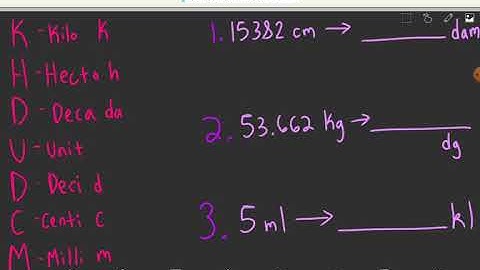 K - Kilo K
H - Hecto h
D - Deca da
U - Unit
D - Deci d
C - Centi C
M - Milli m
1. 15382 cm → ________ dam
2. 53.662 Kg → ________ dg
3. 5 ml → ________ kl